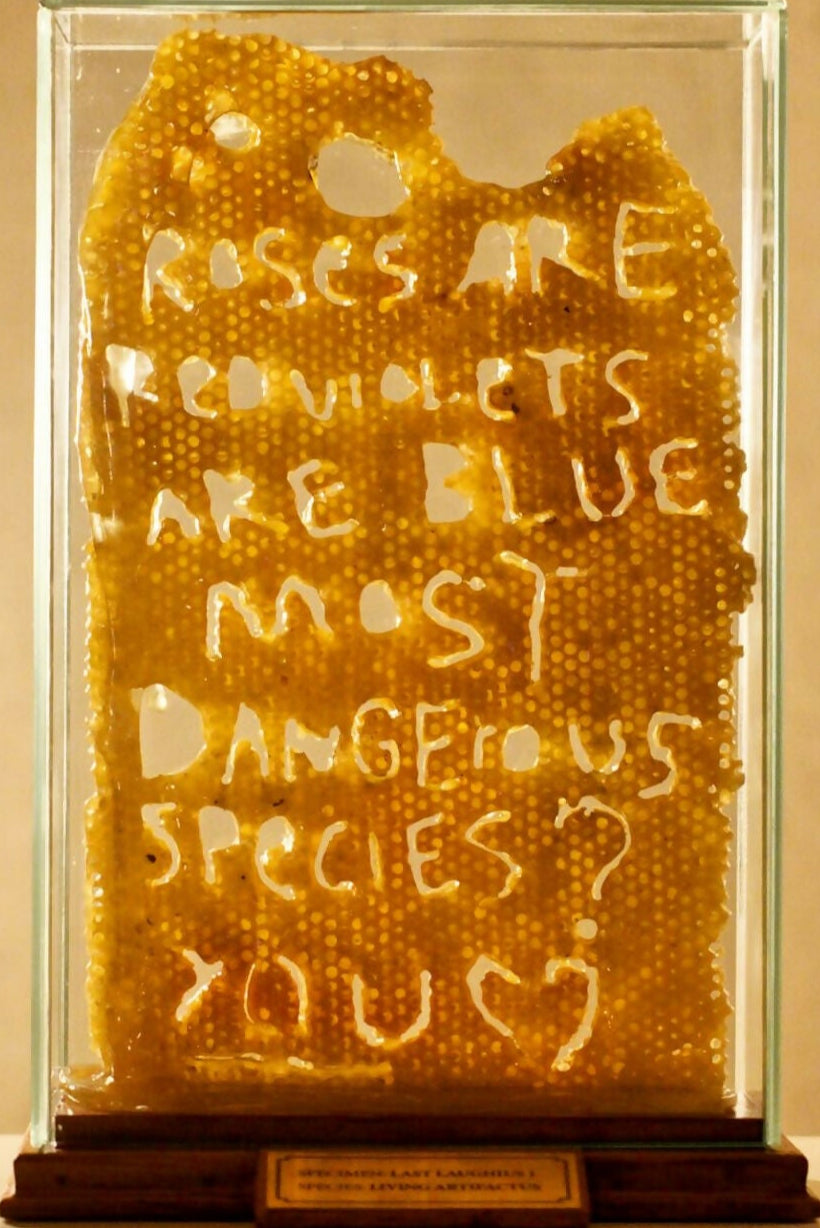 ROSeS ARE
ReD VIOLeTS
ARE BLUE
MOST
DANGErOUS
SPeCIES?
YOU♡
SPECIMEN: LAST LAUGHIUS I
SPECIES: LIVING ARTIFACTUS